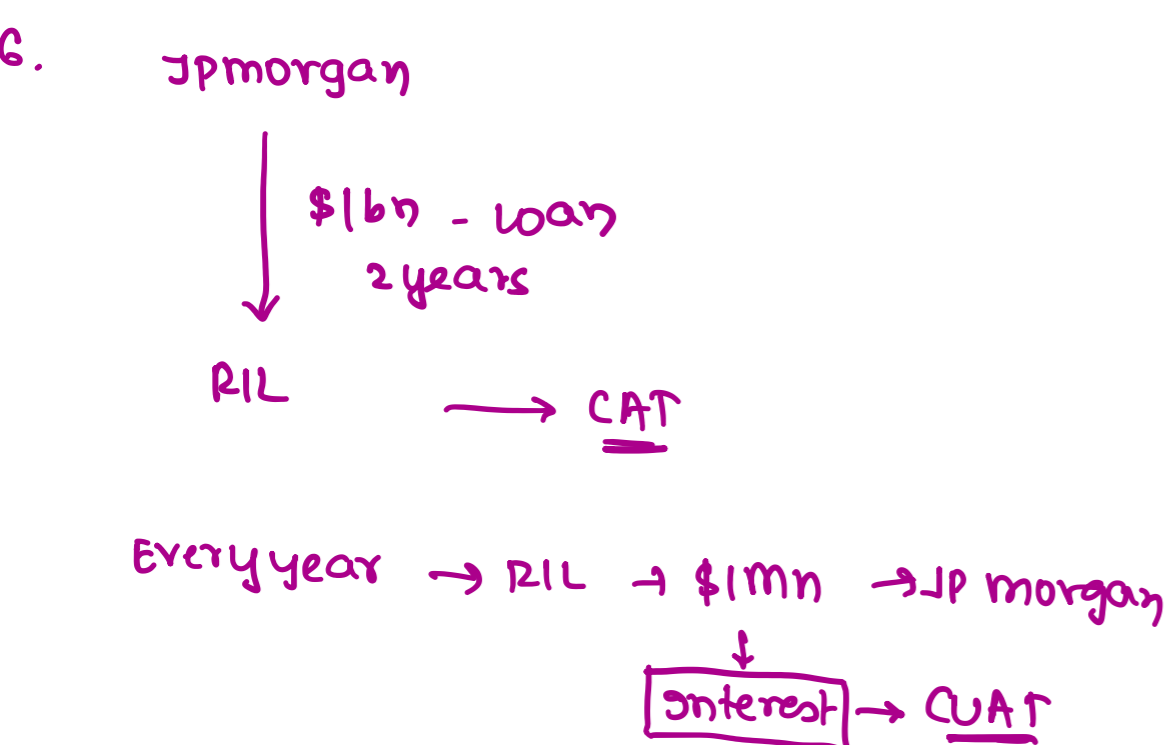 6. JPmorgan
$1bn - loan
2 years
RIL → CAT
Every year → RIL → $1Mn → JP morgan
Interest → CUAT